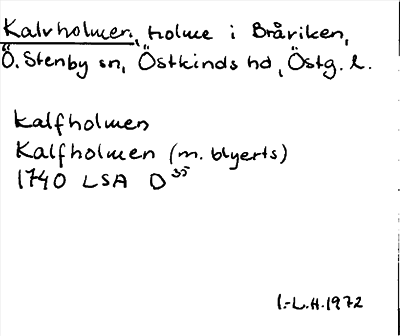 Kalvholmen, holme i Bråviken,
Ö. Stenby sn, Östkinds hd, Östg. l.
Kalfholmen
Kalfholmen (m. blyerts)
1740 LSA D 35
I.-L.H. 1972